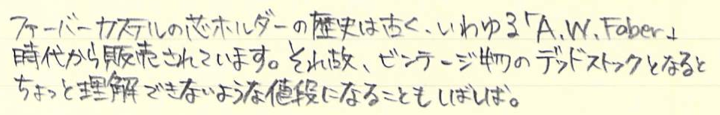 ファーバーカステルの芯ホルダーの歴史は古く、いわゆる「A.W.Faber」
時代から販売されています。それ故、ビンテージ物のデッドストックとなると
ちょっと理解できないような値段になることもしばしば。